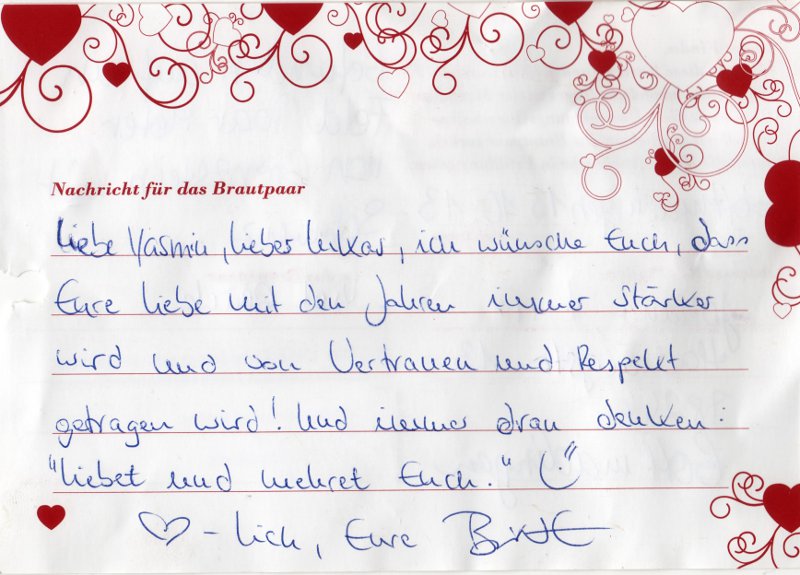 Nachricht für das Brautpaar
Liebe Yasmin, lieber Lukas, ich wünsche Euch, dass
Eure Liebe mit den Jahren immer stärker
wird und von Vertrauen und Respekt
getragen wird! Und immer dran denken:
"Liebet und mehret Euch." Ü
♡-lich, Eure